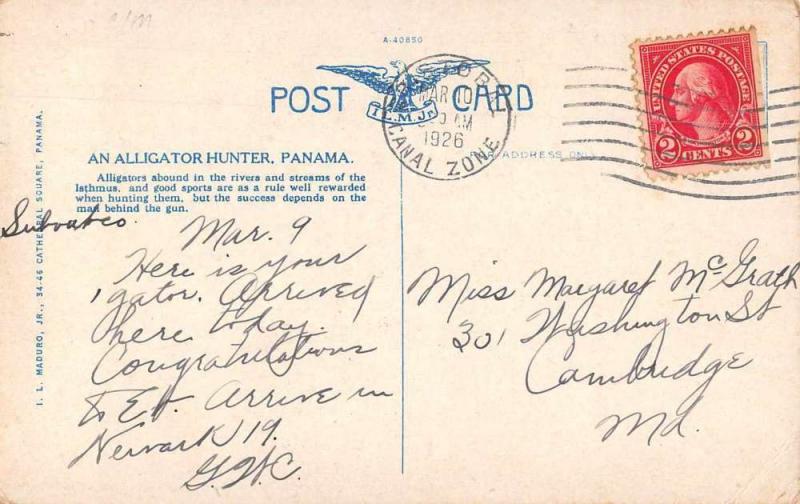 A-40850
POST CARD
I.L.M.Jr.
MAR 10
AM
1926
CANAL ZONE
UNITED STATES POSTAGE
2 CENTS 2
FOR ADDRESS ONLY
AN ALLIGATOR HUNTER, PANAMA.
Alligators abound in the rivers and streams of the
Isthmus, and good sports are as a rule well rewarded
when hunting them, but the success depends on the
man behind the gun.
I. L. MADURO, JR., 34-46 CATHEDRAL SQUARE, PANAMA.
Mar. 9
Here is your
'gator. Arrived
here today.
Congratulations
to Ed. Arrive in
Newark 19.
G.W.C.
Miss Margaret McGrath
301 Washington St
Cambridge
Md.